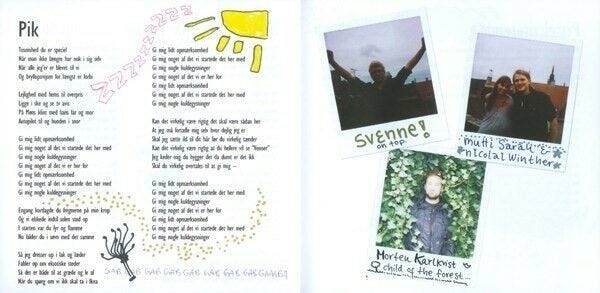 Pik
Tosomhed du er speciel
Når man ikke længere har nok i sig selv
Når alle jeg'er er blevet til vi
Og bryllupsrejsen for længst er forbi
Lejlighed med hems til overpris
Ligge i ske og se tv avis
På Møns klint med hans far og mor
Autopilot til og hunden i snor
Gi mig lidt opmærksomhed
Gi mig noget af det vi startede det her med
Gi mig nogle kuldegysninger
Gi mig noget af det vi er her for
Gi mig lidt opmærksomhed
Gi mig noget af det vi startede det her med
Gi mig nogle kuldegysninger
Engang kortlagde du fregnerne på min krop
Og vi elskede indtil solen stod op
I starten var du fyr og flamme
Nu falder du i søvn med det samme
Så jeg dresser up i lak og læder
Fabler op om eksotiske steder
Så den er både til at græde og le af
Når du spørg om vi ikk skal ta i Ikea
ZZZZZZZZZZZ
Gi mig lidt opmærksomhed
Gi mig noget af det vi startede det her med
Gi mig nogle kuldegysninger
Gi mig noget af det vi er her for
Gi mig lidt opmærksomhed
Gi mig noget af det vi startede det her med
Gi mig nogle kuldegysninger
Kan det virkelig være rigtig det skal være sådan her
At jeg må fortælle mig selv hvor dejlig jeg er
Skal jeg sætte ild til dit hår før du virkelig tænder
Kan det virkelig være rigtig at du hellere vil se "Venner"
Jeg keder mig du hygger det da dumt er det ikk
Skal du virkelig overtales til at gi mig –
Gi mig lidt opmærksomhed
Gi mig noget af det vi startede det her med
Gi mig nogle kuldegysninger
Gi mig lidt opmærksomhed
Gi mig noget af det vi startede det her med
Gi mig nogle kuldegysninger
Gi mig lidt opmærksomhed
Gi mig noget af det vi startede det her med
Gi mig nogle kuldegysninger
GAB GAB GAB GAB GAB GAB
Svenne!
on top
Mutti Sarah &
Nicolai Winther
Morten Karlkvist
child of the forest...